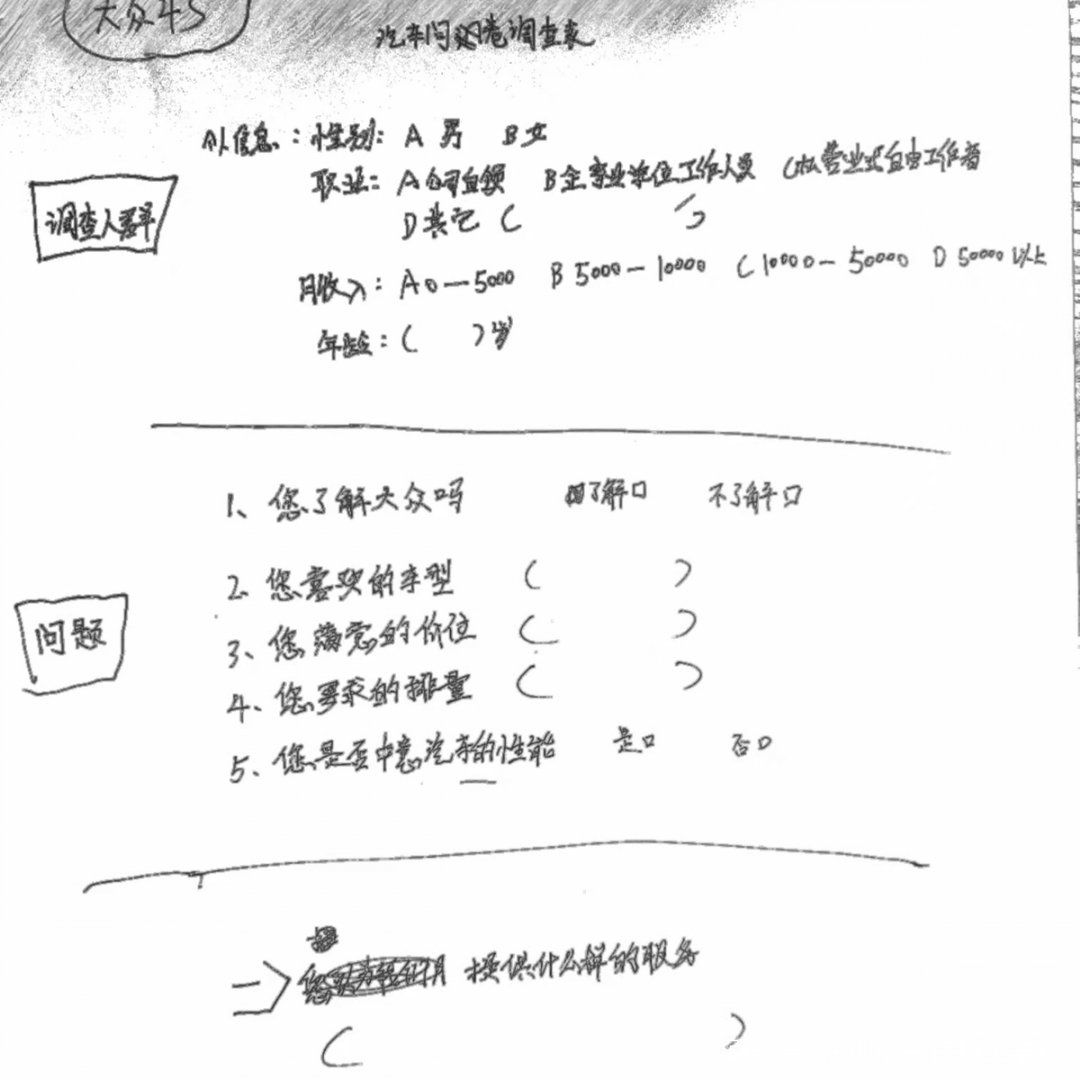 大众4S
汽车问卷调查表
个人信息：性别：A 男 B 女
调查人群
职业：A公司白领 B企事业单位工作人员 C私营业或自由工作者
D其它（ ）
月收入：A 0—5000 B 5000—10000 C 10000—50000 D 50000以上
年龄：（ ）岁
1、您了解大众吗 了解□ 不了解□
2、您喜欢的车型（ ）
问题
3、您满意的价位（ ）
4、您要求的排量（ ）
5、您是否中意汽车的性能 是□ 否□
=> 您 提供什么样的服务
（ ）